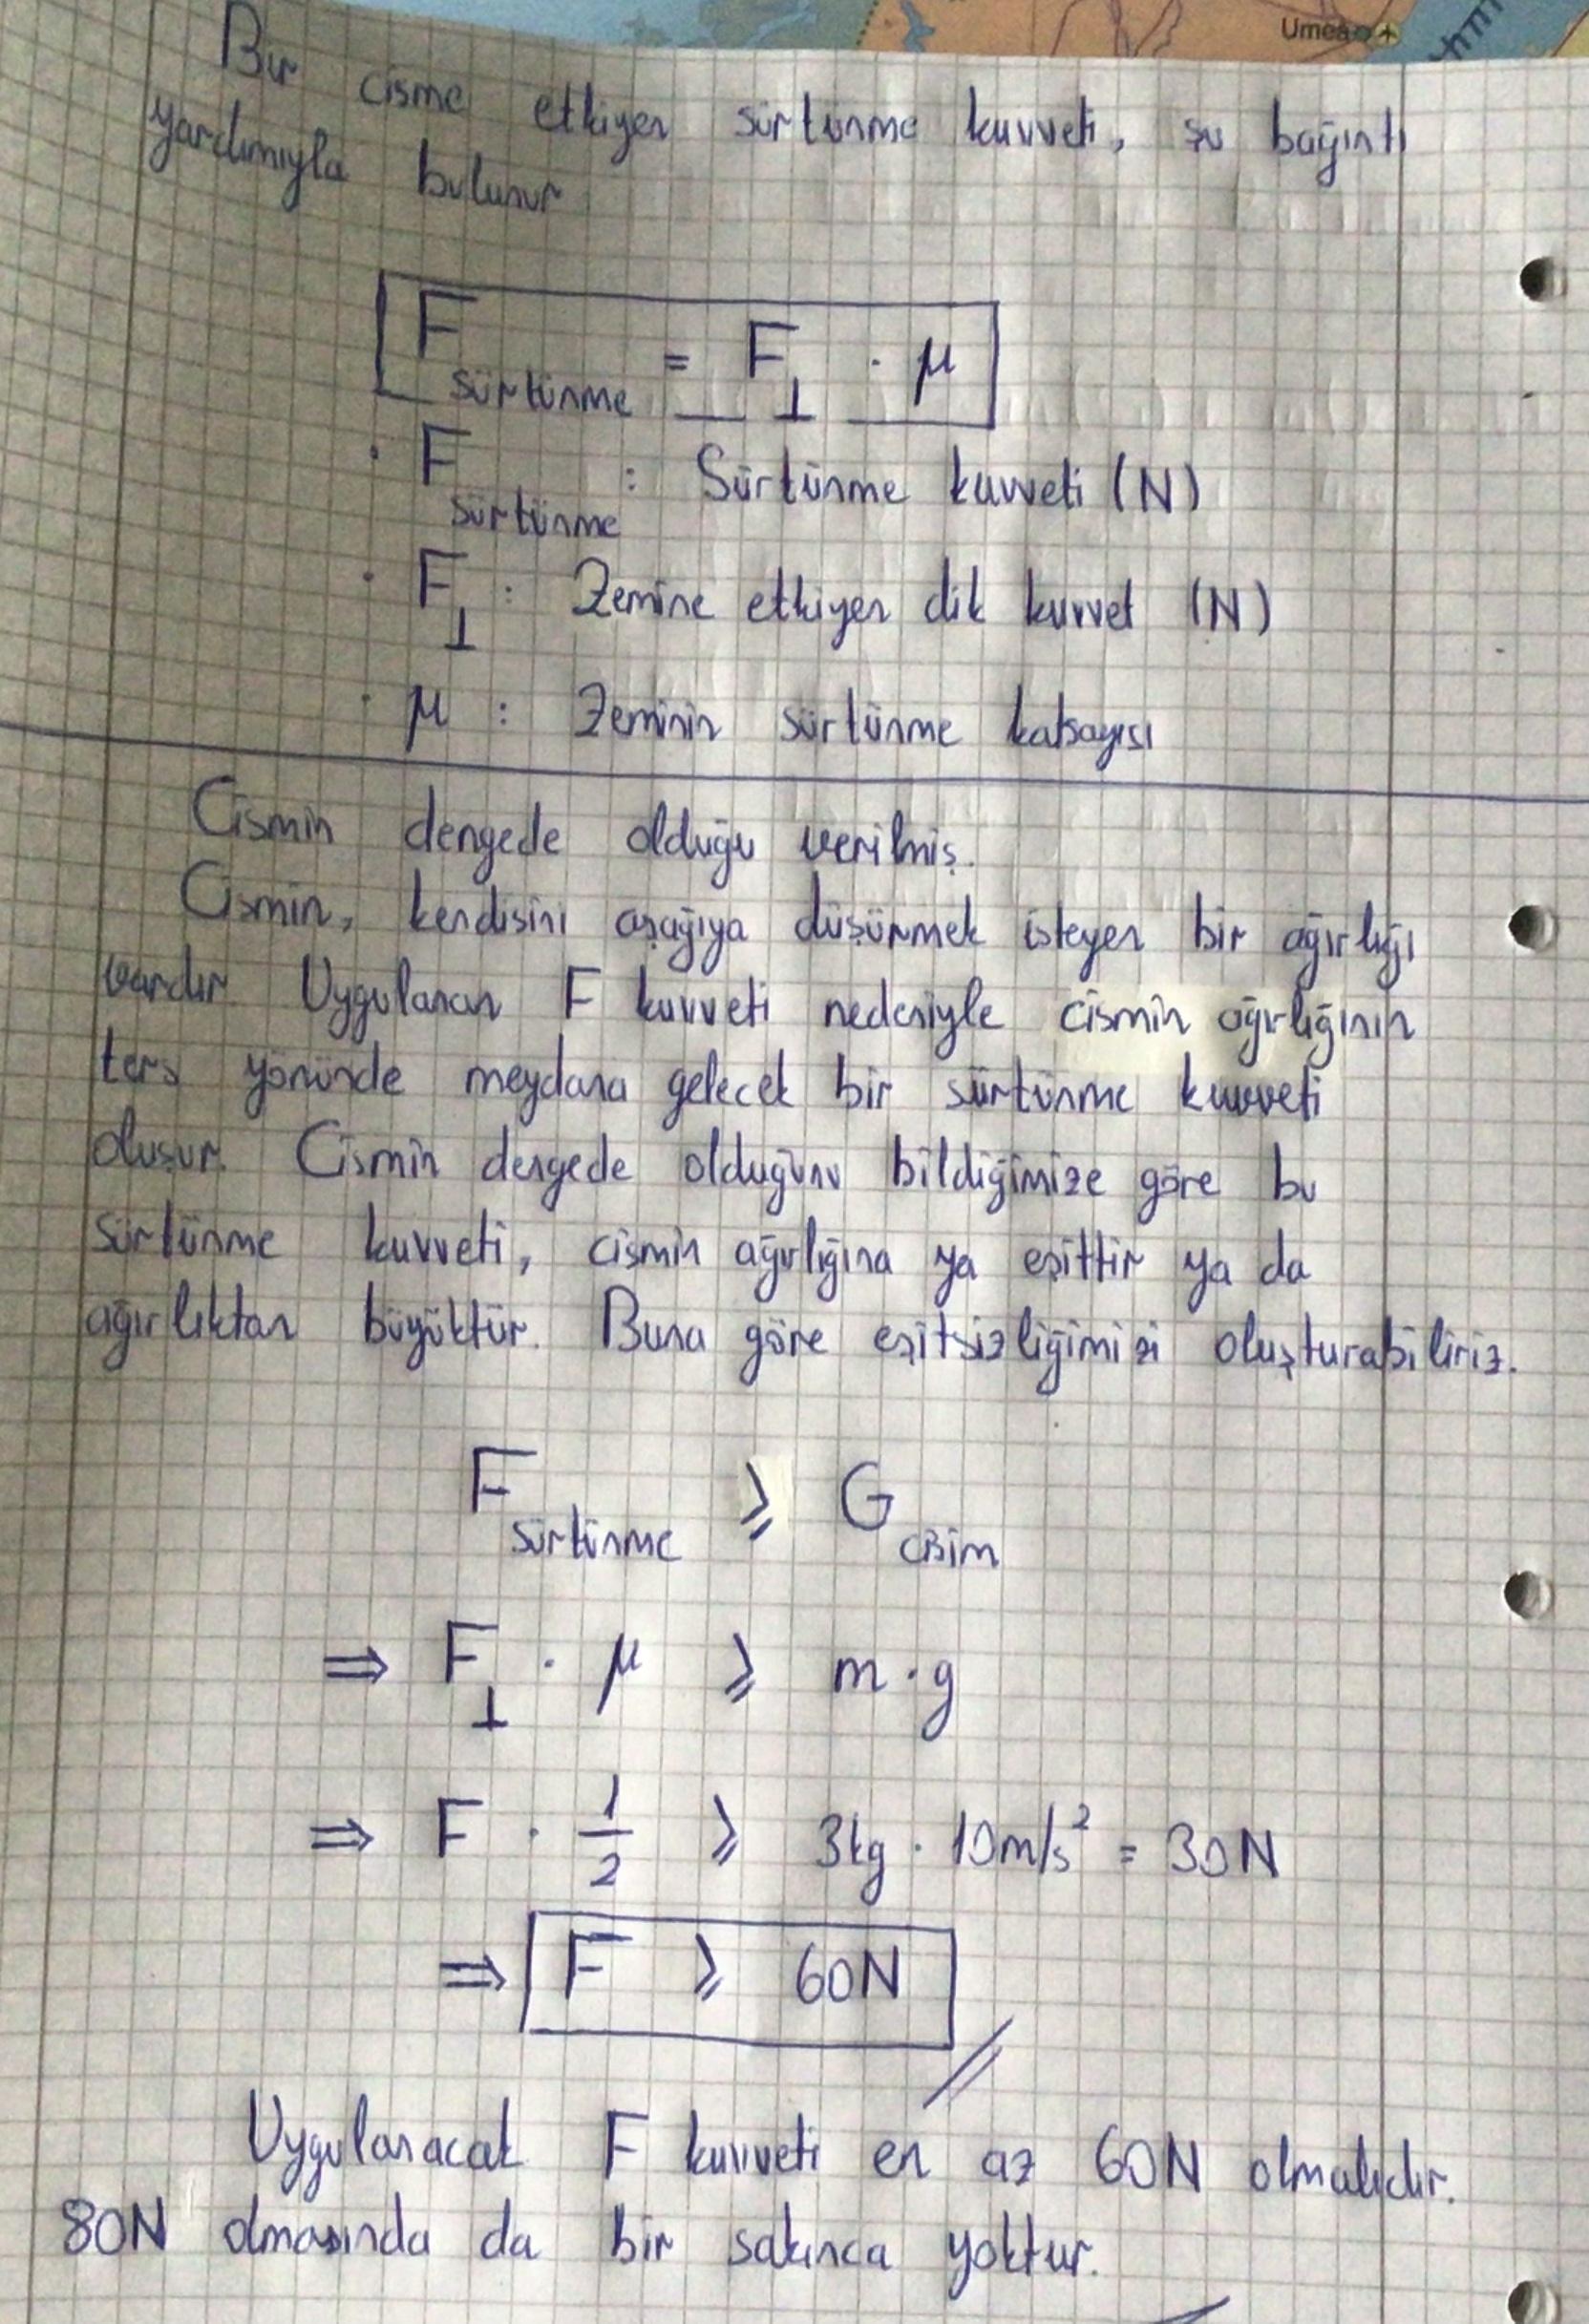 Umeå
Bir cisme etkiyen sürtünme kuvveti, şu bağıntı
yardımıyla bulunur
F sürtünme = F⊥ · μ
· F sürtünme : Sürtünme kuvveti (N)
· F⊥ : Zemine etkiyen dik kuvvet (N)
· μ : Zeminin sürtünme katsayısı
Cismin dengede olduğu verilmiş.
Cismin, kendisini aşağıya düşürmek isteyen bir ağırlığı
vardır. Uygulanan F kuvveti nedeniyle cismin ağırlığının
ters yönünde meydana gelecek bir sürtünme kuvveti
oluşur. Cismin dengede olduğunu bildiğimize göre bu
sürtünme kuvveti, cismin ağırlığına ya eşittir ya da
ağırlıktan büyüktür. Buna göre eşitsizliğimizi oluşturabiliriz.
F sürtünme ⩾ G cisim
⇒ F⊥ · μ ⩾ m·g
⇒ F · 1/2 ⩾ 3kg · 10m/s² = 30N
⇒ F ⩾ 60N
Uygulanacak F kuvveti en az 60N olmalıdır.
80N olmasında da bir sakınca yoktur.